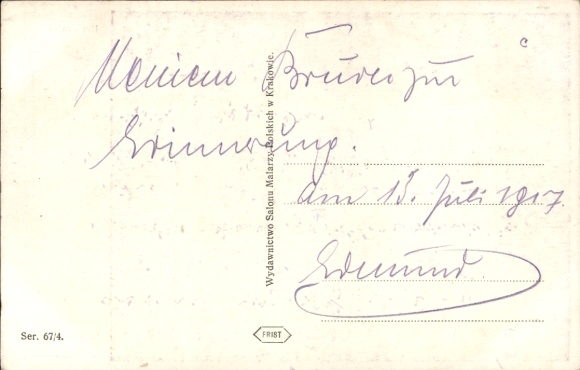 c
Meinem Bruder zur
Erinnerung.
am 13. Juli 1917.
Edmund
Wydawnictwo Salonu Malarzy Polskich w Krakowie.
Ser. 67/4.
FRIST